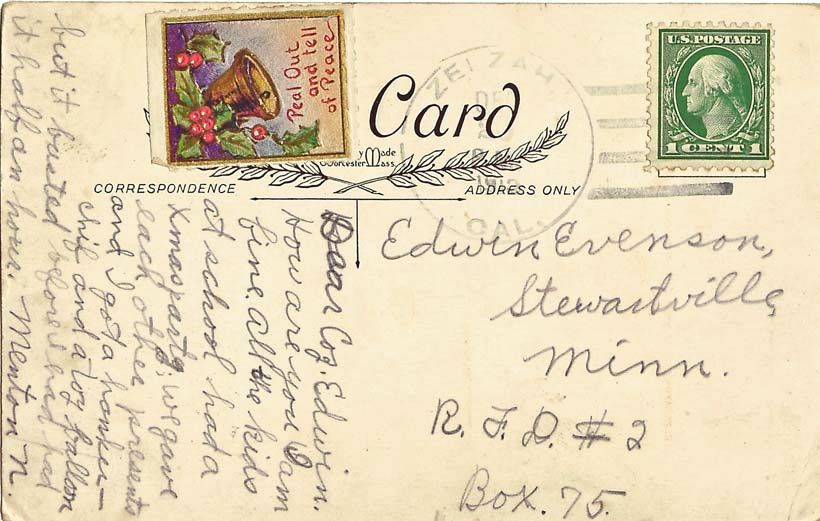 Peal Out
and tell
of Peace
Card
y Made
Worcester Mass.
ZELZAH
CAL.
U.S. POSTAGE
1 CENT 1
CORRESPONDENCE
ADDRESS ONLY
Edwin Evenson,
Stewartville
Minn.
R. F. D. # 2
Box. 75.
Dear Coz. Edwin.
How are you I am
fine. All the kids
at school had a
Xmas party, we gave
each other presents
and I got a hanker—
chif and a toy
but it busted before I had had
it half an hour. Menton N.